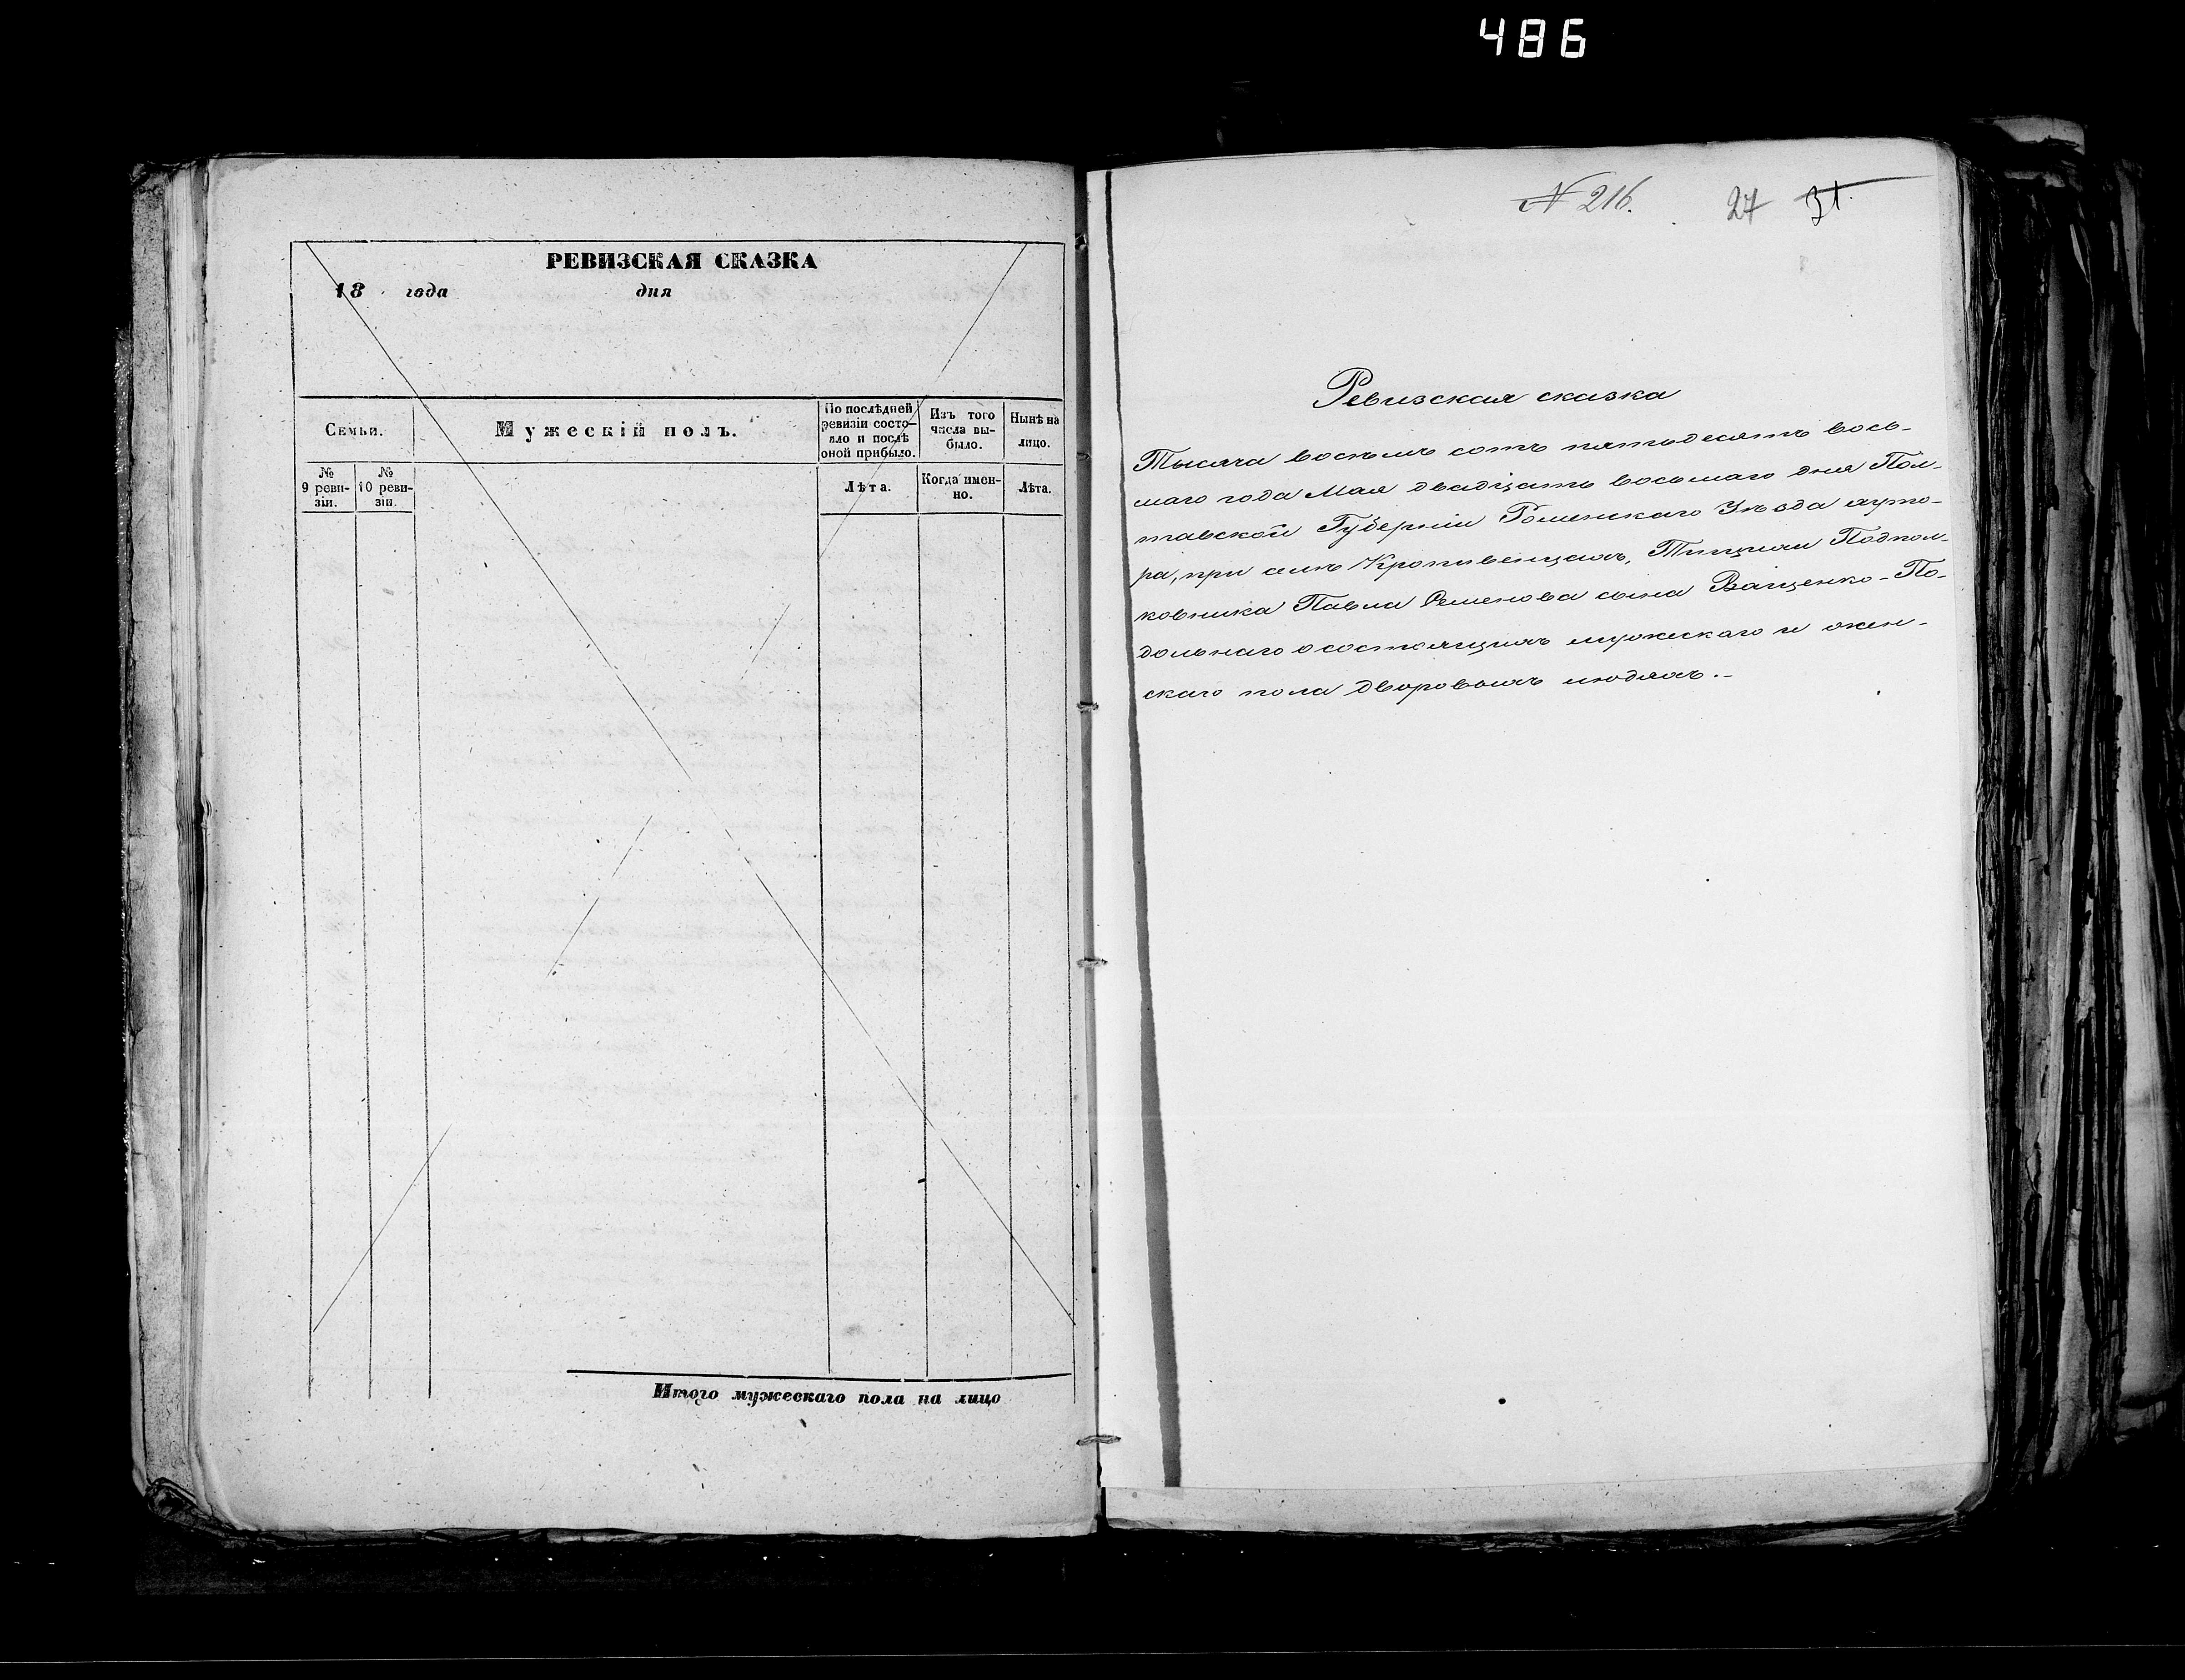 486
РЕВИЗСКАЯ СКАЗКА
18 года дня
Семьи.
Мужескій полъ.
По послѣдней ревизіи состо-
яло и послѣ оной прибыло.
Изъ того числа вы-
было.
Нынѣ на лицо.
№ 9 реви-
зіи.
№ 10 реви-
зіи.
Лѣта.
Когда имен-
но.
Лѣта.
Итого мужескаго пола на лицо
№ 216. 27 31.
Ревизская сказка
Тысяча восемь сотъ пятьдесятъ вось-
маго года Мая двадцать восьмаго дня Пол-
тавской Губерніи Роменскаго Уѣзда
ра, при селѣ Кропивенцахъ, Подпол-
ковника Павла Семенова сына Ващенко-По-
дольнаго о состоящихъ мужескаго и жен-
скаго пола дворовыхъ людяхъ.-